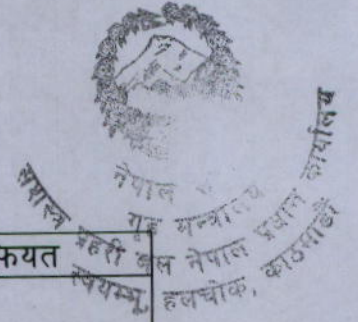 नेपाल
गृह मन्त्रालय
सशस्त्र प्रहरी बल नेपाल प्रधान कार्यालय
स्वयम्भू, हलचोक, काठमाडौं
फियत